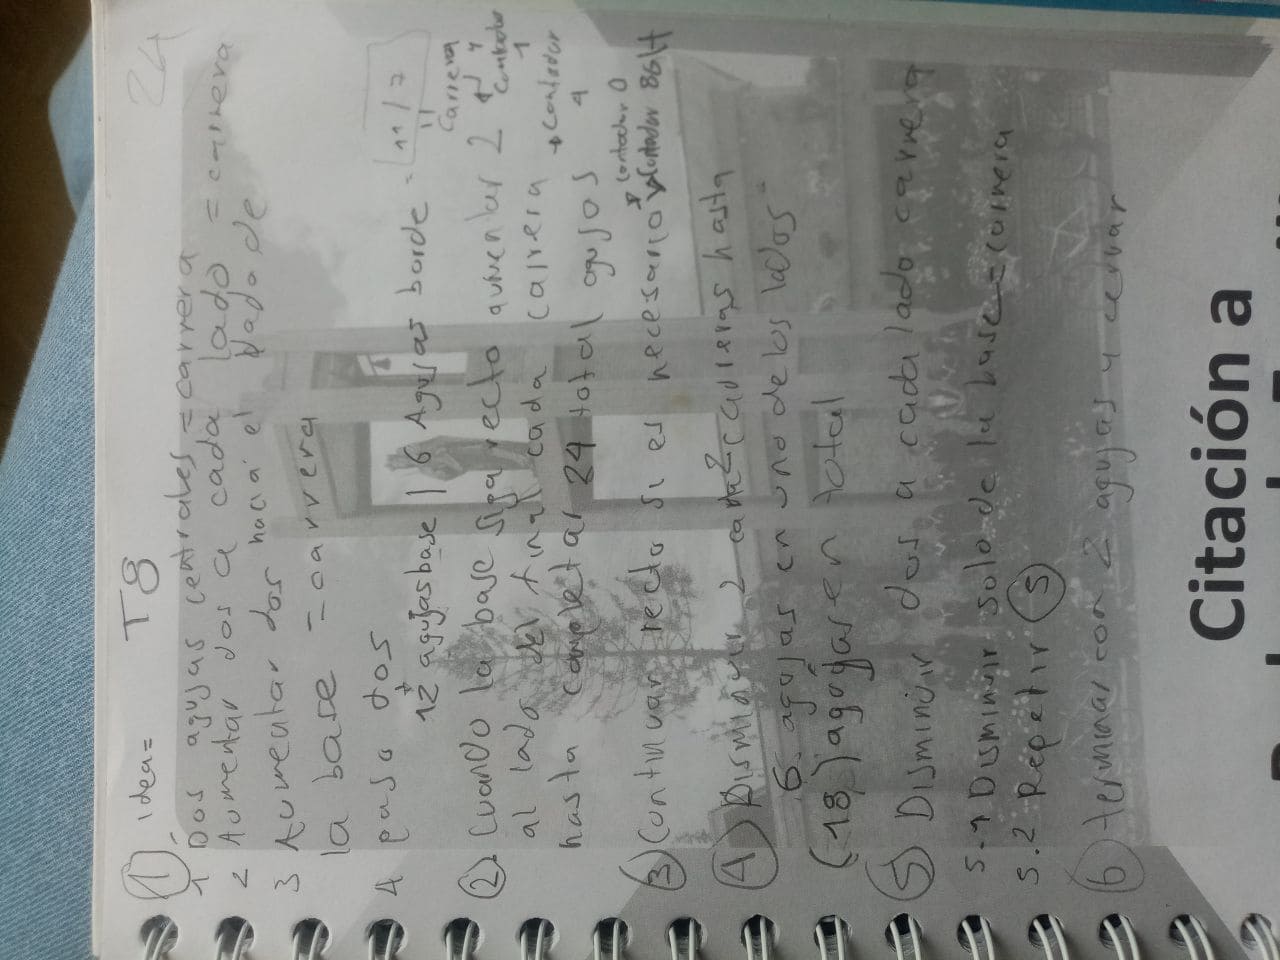 24
1 idea= T8
1 Dos agujas centrales = carrera
2 Aumentar dos a cada lado = carrera
3 Aumentar dos hacia el lado de
la base = carrera
4 paso dos
12 agujas base | 6 Agujas borde = 11/7
carrera
2. Cuando la base siga recto aumentar 2
carrera 4
contador 1
al lado del final cada carrera → contador
hasta completar 24 total agujas 4
contador 0
3 Continuar recto si es necesario contador 86
4 Disminuir 2 cada 2 carreras hasta
6 agujas en uno de los lados
(18) agujas en total
5 Disminuir dos a cada lado carrera
5.1 Disminuir solo de la base = carrera
5.2 Repetir 5
6 terminar con 2 agujas y cerrar
Citación a